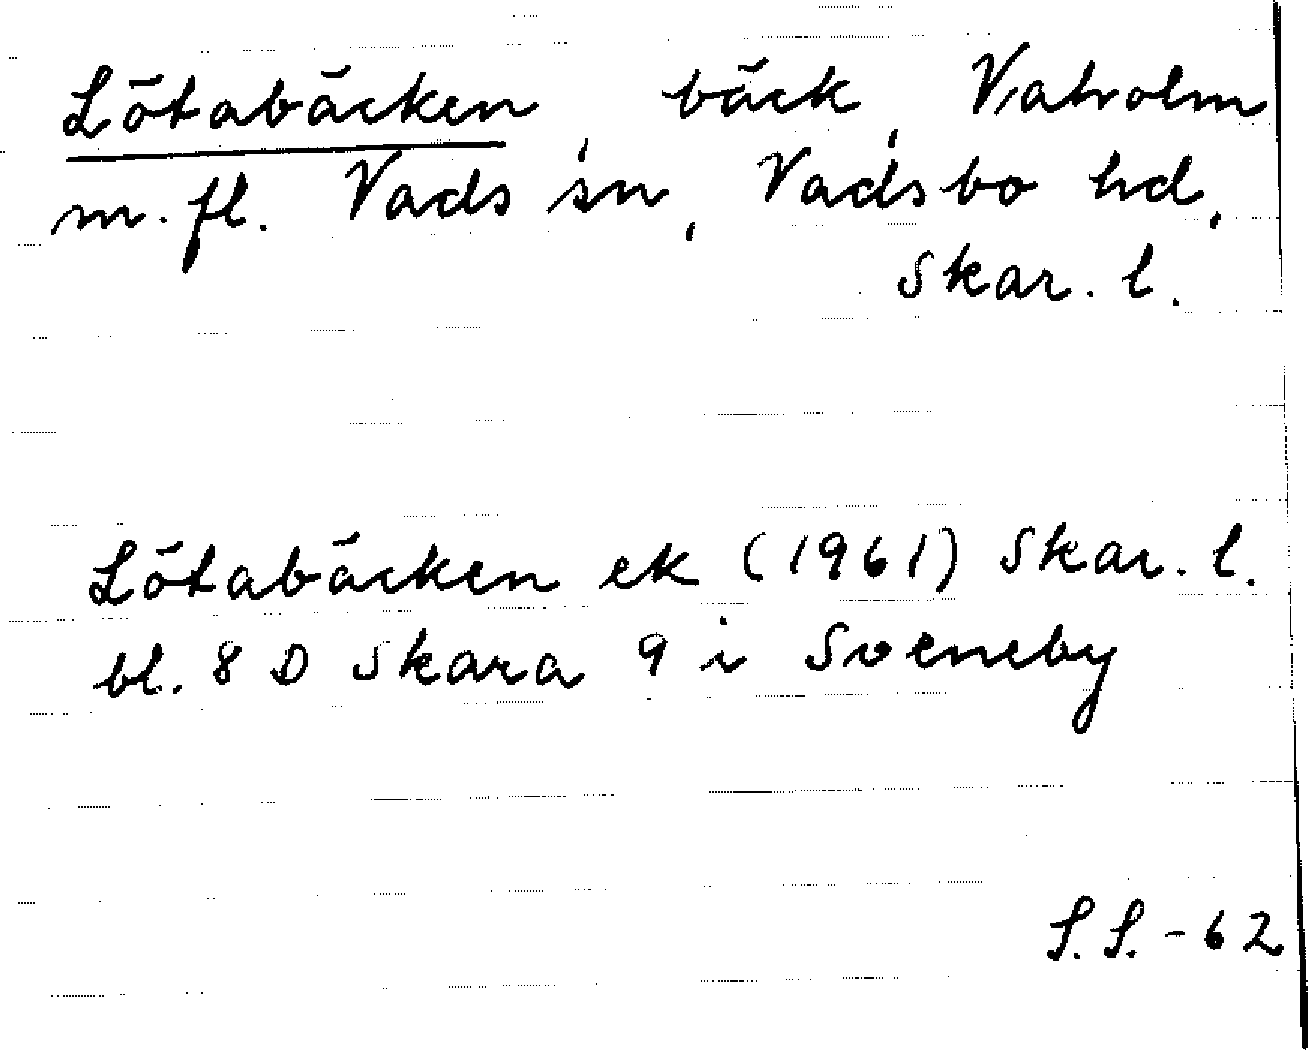 Lötabäcken, bäck, Vaholm
m.fl. Vads sn, Vadsbo hd,
Skar. l.
Lötabäcken ek (1961) Skar. l.
bl. 8 D Skara 9 i Sveneby
S.S.-62